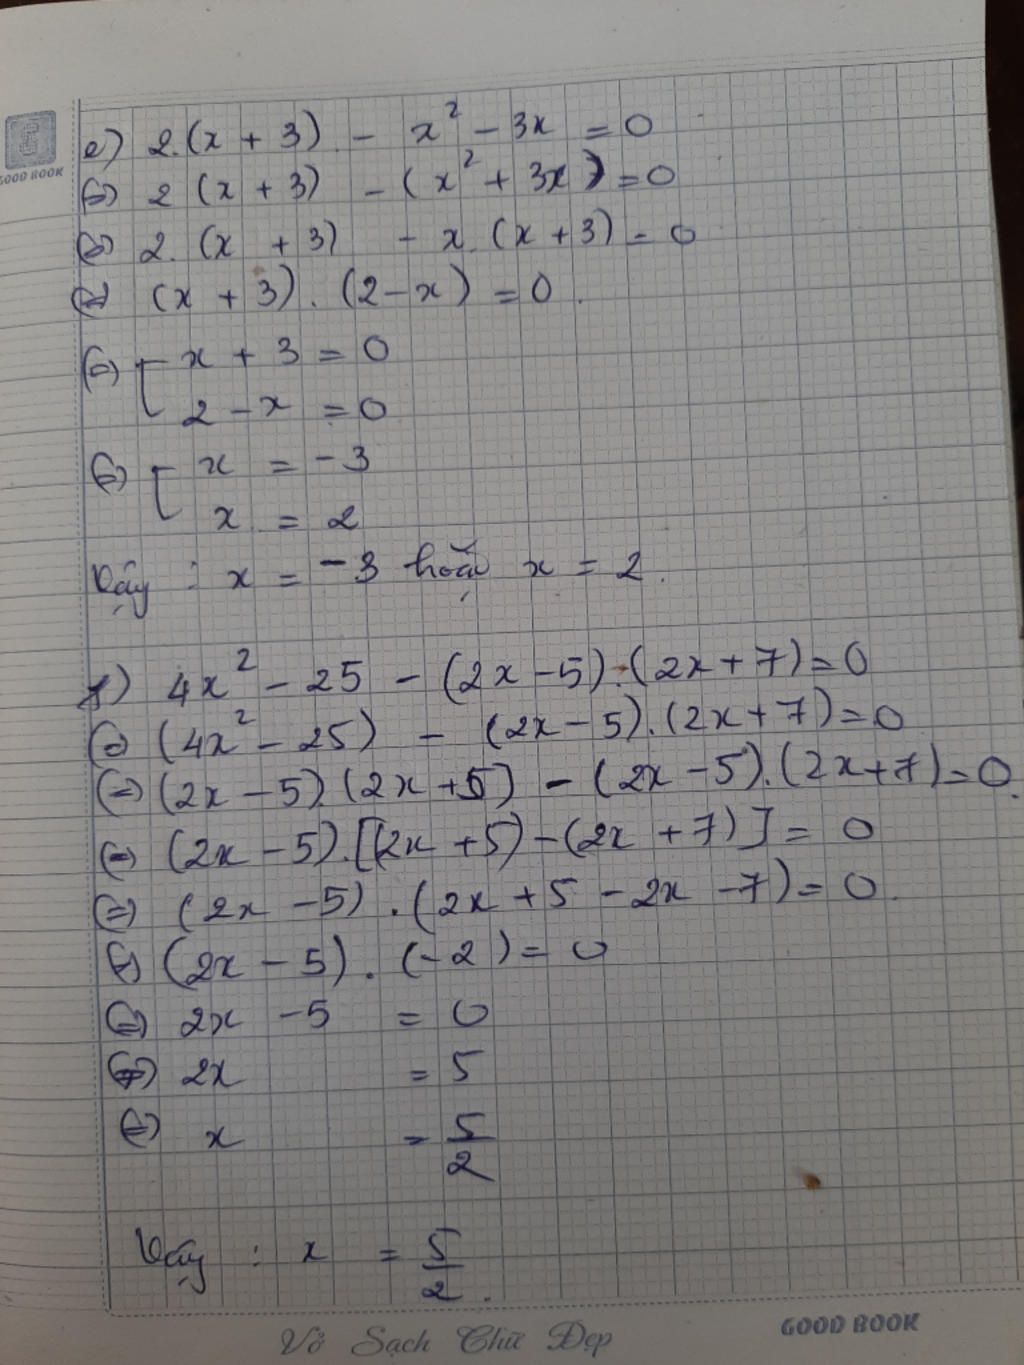 GOOD BOOK
e) 2.(x + 3) - x² - 3x = 0
⇔ 2 (x + 3) - (x² + 3x) = 0
⇔ 2. (x + 3) - x. (x + 3) = 0
⇔ (x + 3) . (2 - x) = 0.
⇔ [ x + 3 = 0
2 - x = 0
⇔ [ x = -3
x = 2
Vậy : x = -3 hoặc x = 2.
f) 4x² - 25 - (2x - 5).(2x + 7) = 0
⇔ (4x² - 25) - (2x - 5).(2x + 7) = 0
⇔ (2x - 5).(2x + 5) - (2x - 5).(2x + 7) = 0.
⇔ (2x - 5).[(2x + 5) - (2x + 7)] = 0
⇔ (2x - 5) .(2x + 5 - 2x - 7) = 0.
⇔ (2x - 5) . (-2) = 0
⇔ 2x - 5 = 0
⇔ 2x = 5
⇔ x = 5/2
Vậy : x = 5/2.
Vở Sạch Chữ Đẹp
GOOD BOOK